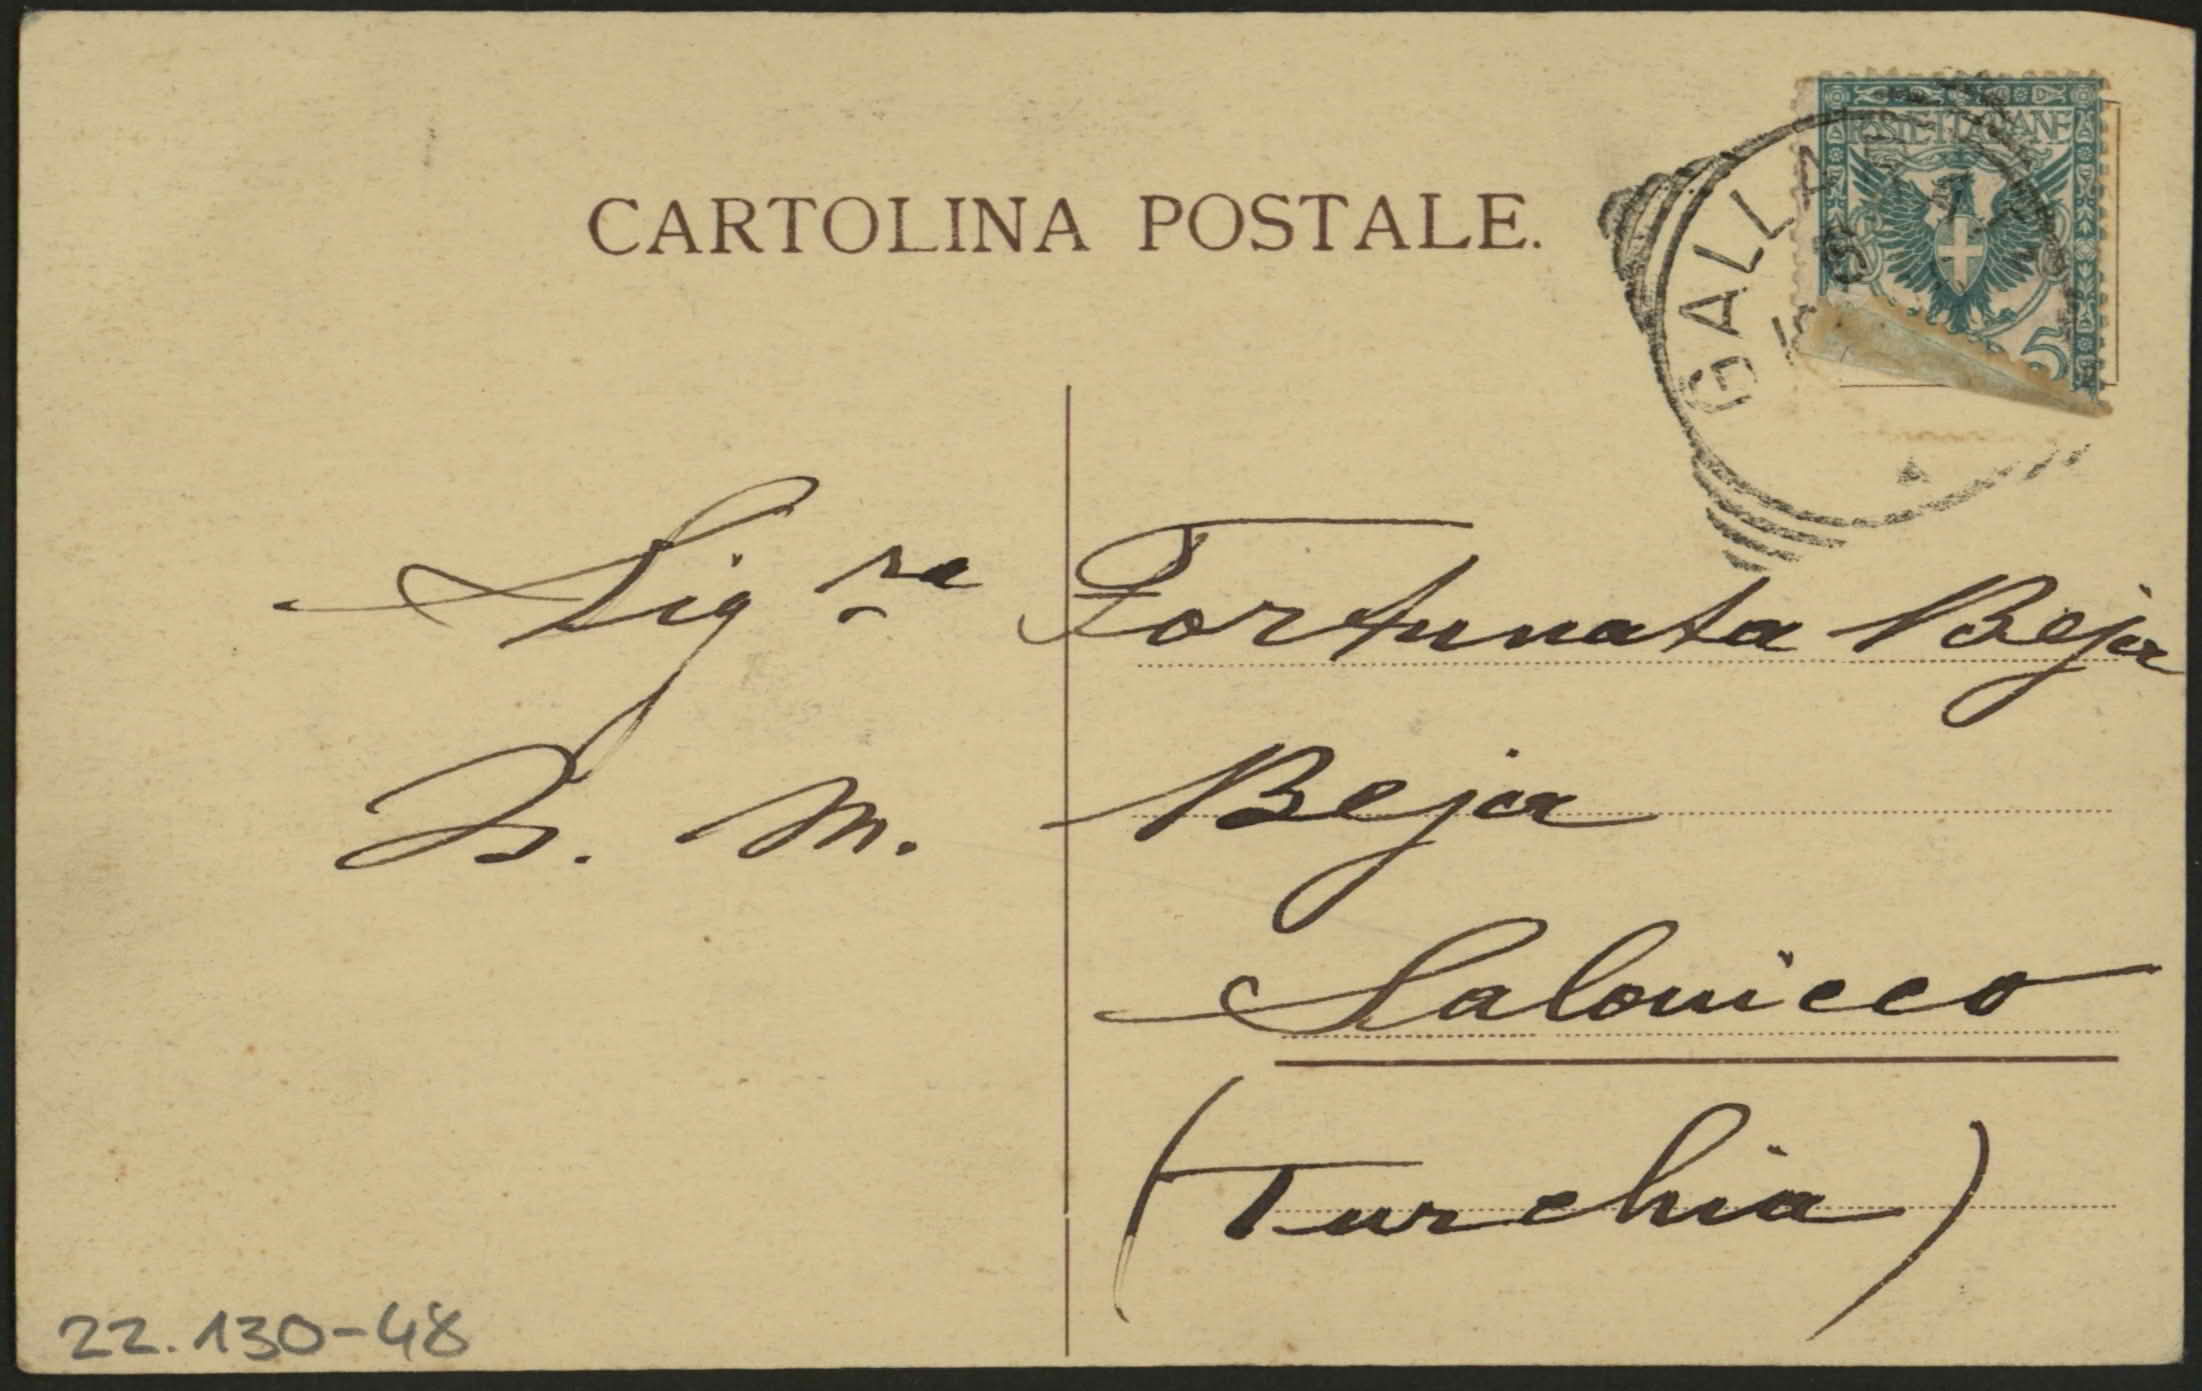 CARTOLINA POSTALE.
POSTE ITALIANE
5
GALLA
Sig.ra Fortunata Beja
B. M. Beja
Salonicco
(Turchia)
22.130-48